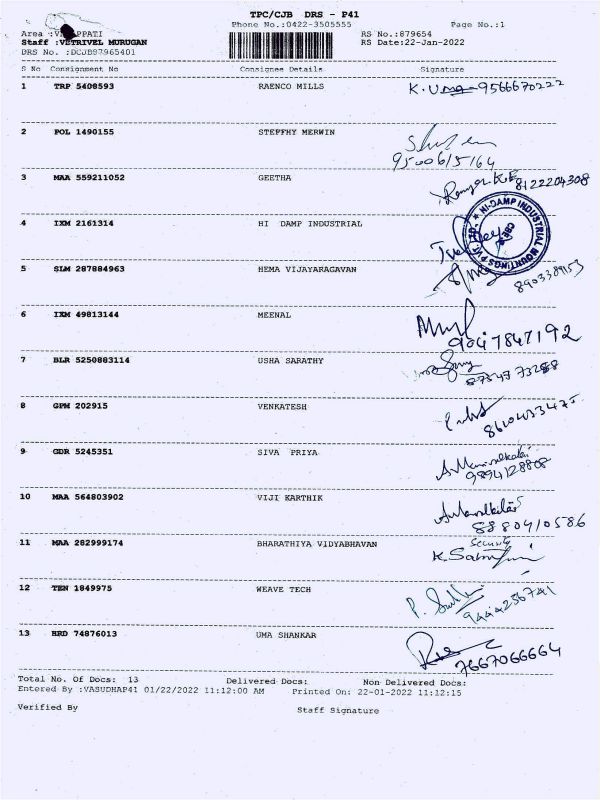 TPC/CJB DRS - P41
Phone No.:0422-3505555 Page No.:1
Area : RS No.:879654
Staff :VETRIVEL MURUGAN RS Date:22-Jan-2022
DRS No. :DCJB87965401
S No Consignment No Consignee Details Signature
1 TRP 5408593 RAENCO MILLS K. Uma 9566670222
2 POL 1490155 STEFFHY MERWIN
9500615164
3 MAA 559211052 GEETHA 8122204308
4 IXM 2161314 HI DAMP INDUSTRIAL
HI-DAMP INDUSTRIAL MOUNTINGS PVT. LTD.
5 SLM 287884963 HEMA VIJAYARAGAVAN
8903389153
6 IXM 49813144 MEENAL
9047847192
7 BLR 5250883114 USHA SARATHY
8 GPM 202915 VENKATESH
8610433475
9 GDR 5245351 SIVA PRIYA
9894128808
10 MAA 564803902 VIJI KARTHIK
8880410586
11 MAA 282999174 BHARATHIYA VIDYABHAVAN Security
K.
12 TEN 1849975 WEAVE TECH
13 BRD 74876013 UMA SHANKAR
7667066664
Total No. Of Docs: 13 Delivered Docs: Non Delivered Docs:
Entered By :VASUDHAP41 01/22/2022 11:12:00 AM Printed On: 22-01-2022 11:12:15
Verified By Staff Signature